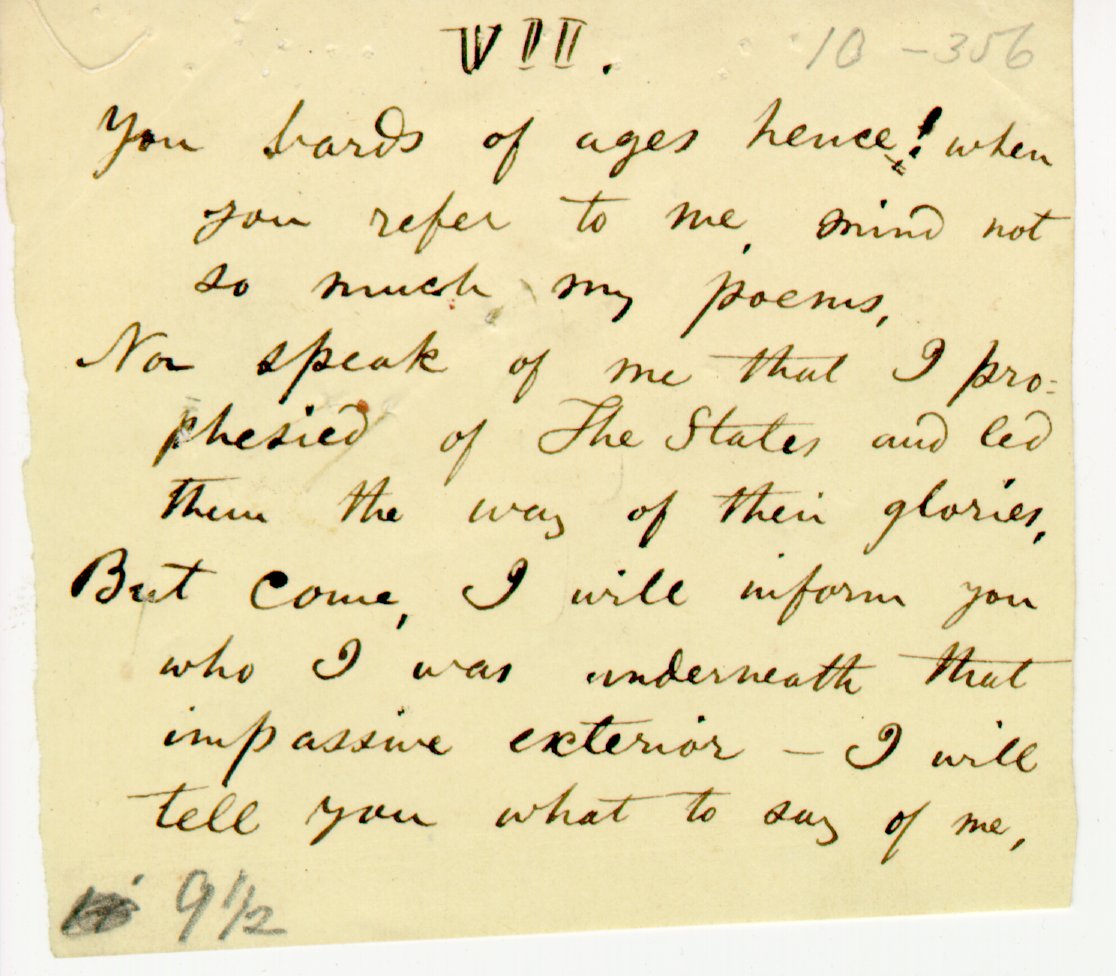 VII.
10 - 356
You bards of ages hence! when
you refer to me, mind not
so much my poems,
Nor speak of me that I pro=
phesied of The States and led
them the way of their glories,
But come, I will inform you
who I was underneath that
impassive exterior — I will
tell you what to say of me,
9 1/2